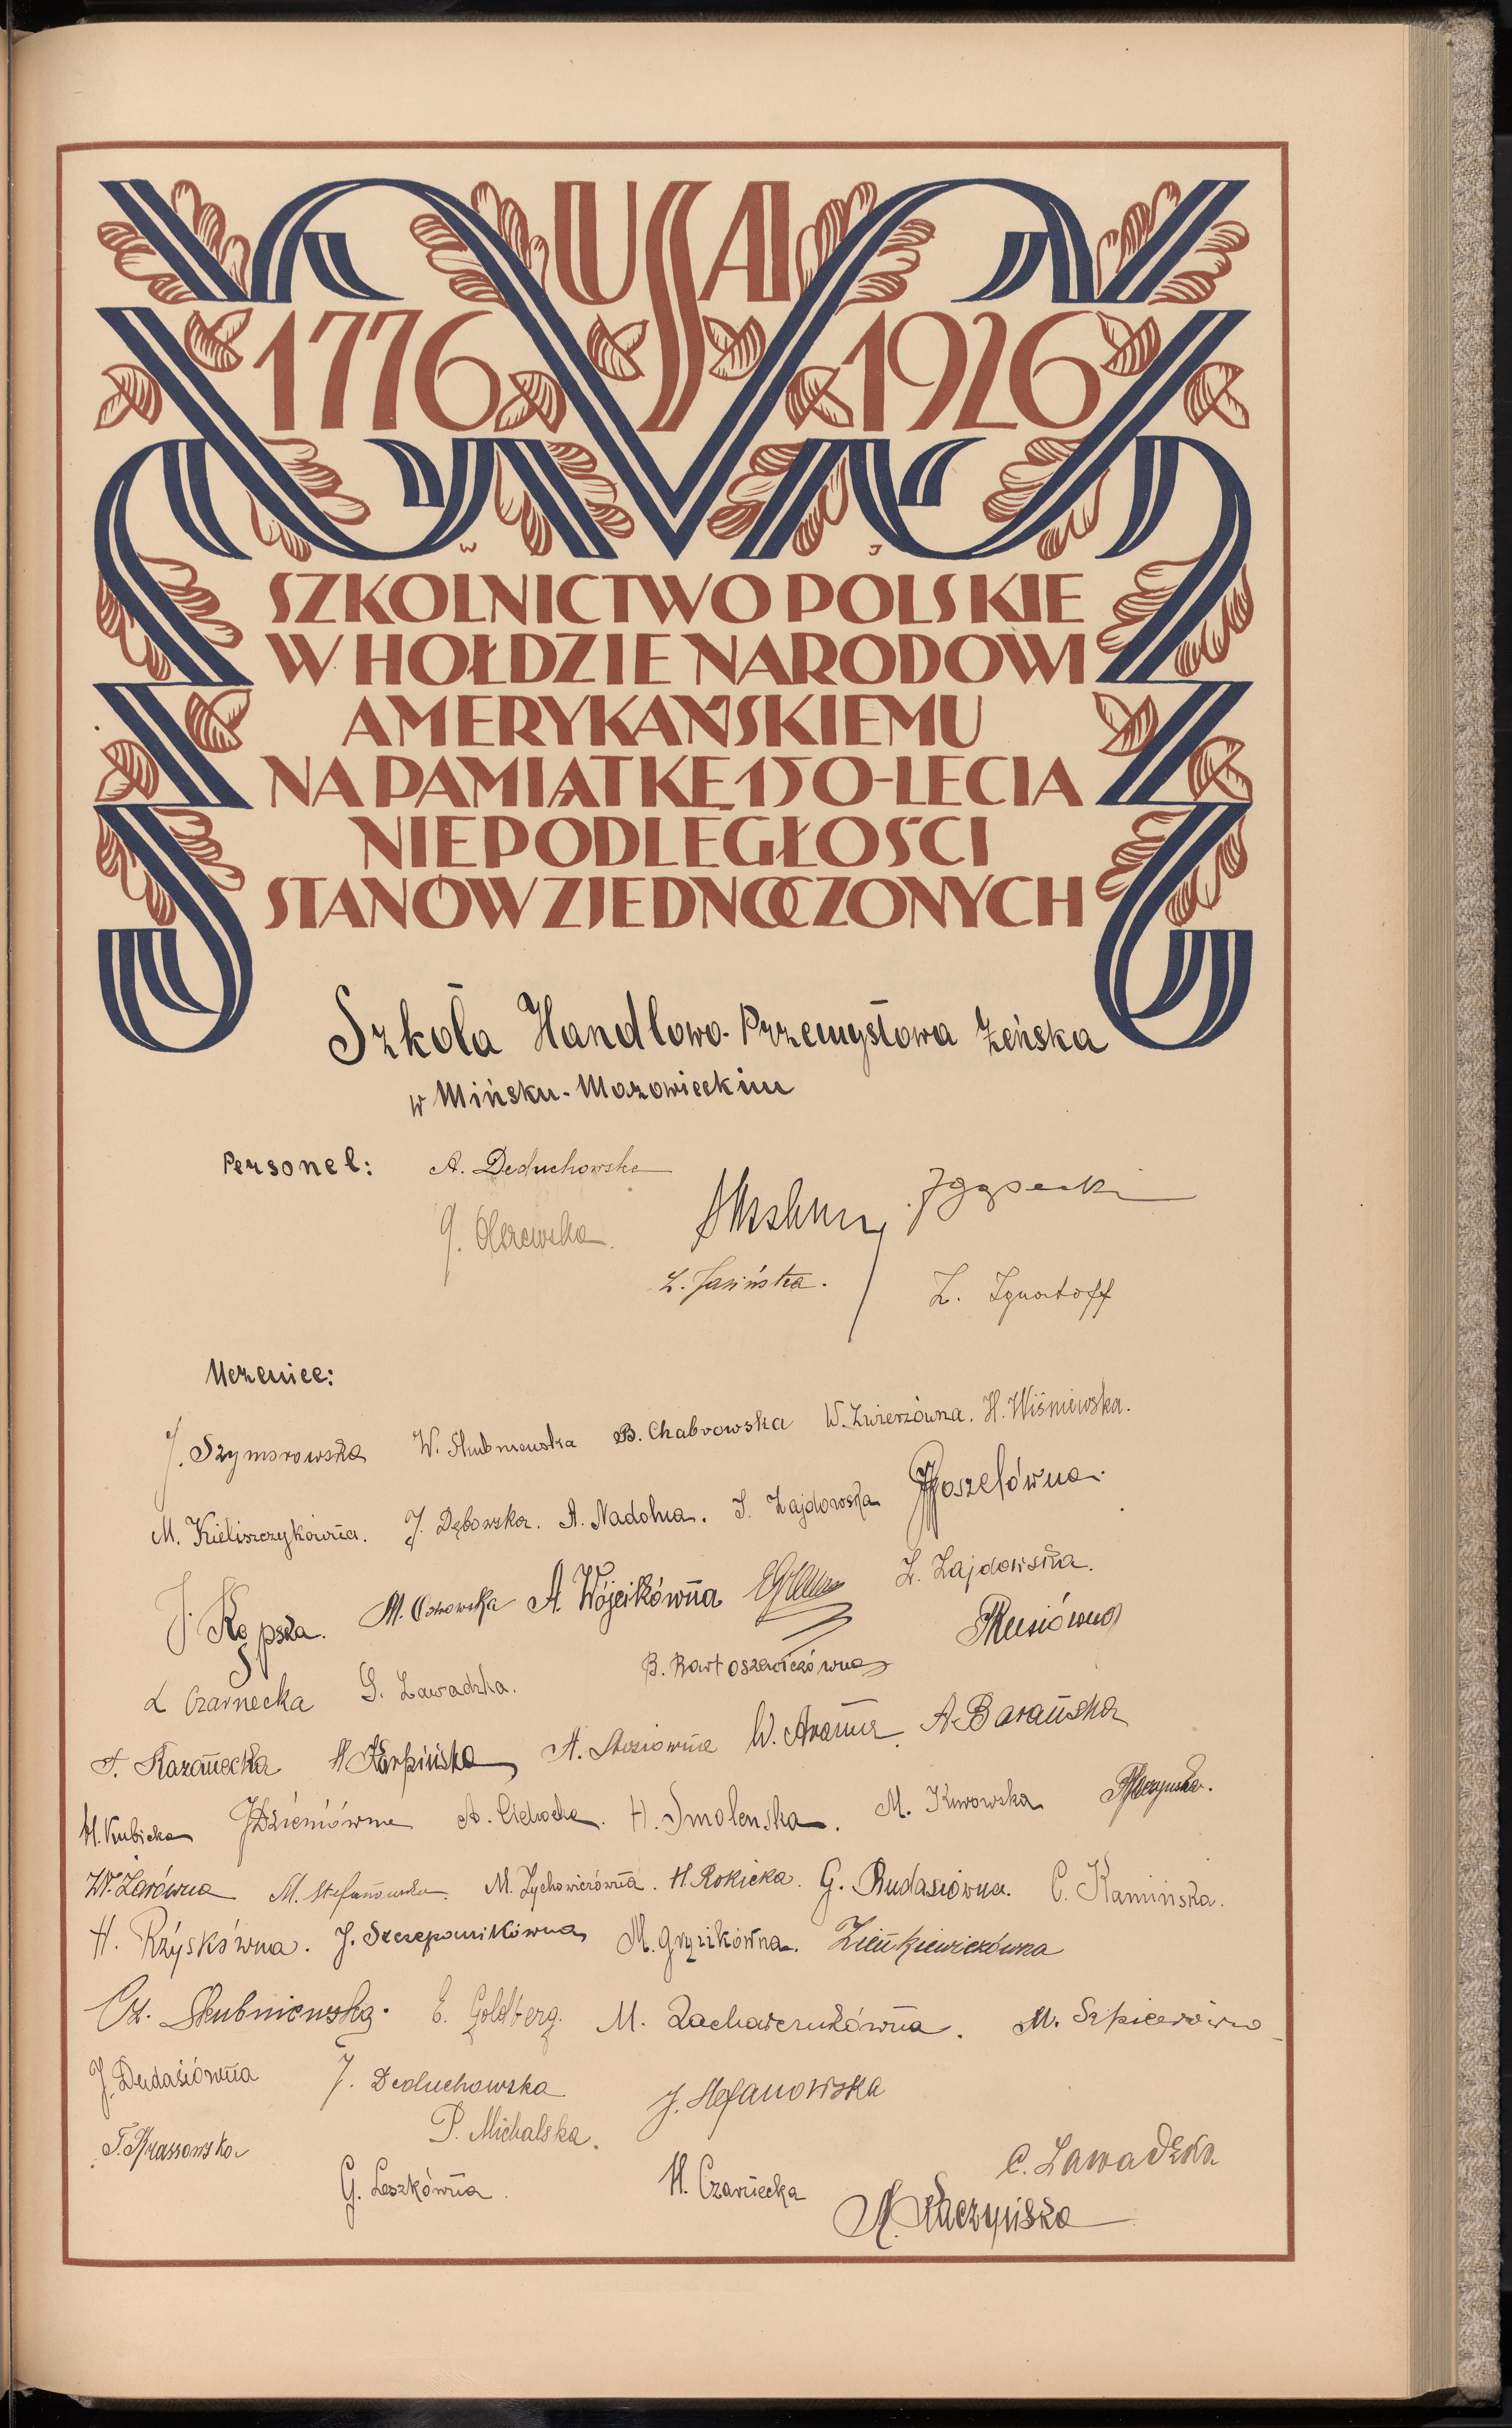 USA
1776 1926
W J
SZKOLNICTWO POLSKIE
W HOŁDZIE NARODOWI
AMERYKAŃSKIEMU
NA PAMIĄTKĘ 150-LECIA
NIEPODLEGŁOŚCI
STANÓW ZJEDNOCZONYCH
Szkoła Handlowo-Przemysłowa Żeńska
w Mińsku-Mazowieckim
Personel: A. Deduchowska
J. Olszewska
Z. Jasińska. Z. Ignatoff
Uczenice:
J. Szymorowska W. Skubniewska B. Chabrowska W. Zwierzówna. H. Wiśniewska.
M. Kieliszczykówna. J. Dębowska. A. Nadolna. S. Zajdowska
J. Kępska. M. Osowska A. Wójcikówna Z. Zajdowska.
L Czarnecka G. Zawadzka. B. Bartoszewiczówna
F. Kazanecka H Karpińska A. W. A. Barańska
H. Kubicka A. Cichocka. H. Smoleńska. M. Kurowska
W. Zarówna M. Stefanowska. M. Zychowiczówna. H. Rokicka. G. Rudasiówna. C. Kamińska.
H. Rżyskówna. J. Szczepanikówna M. Gryzikówna. Zienkiewiczówna
Cz. Skubniewska. E. Goldberg. M. Zacharczukówna. M. Szpicerówna
J. Dudasiówna J. Deduchowska J. Stefanowska
T. Krassowska P. Michalska.
G. Leszkówna. H. Czarnecka C. Zawadzka
M. Raczyńska